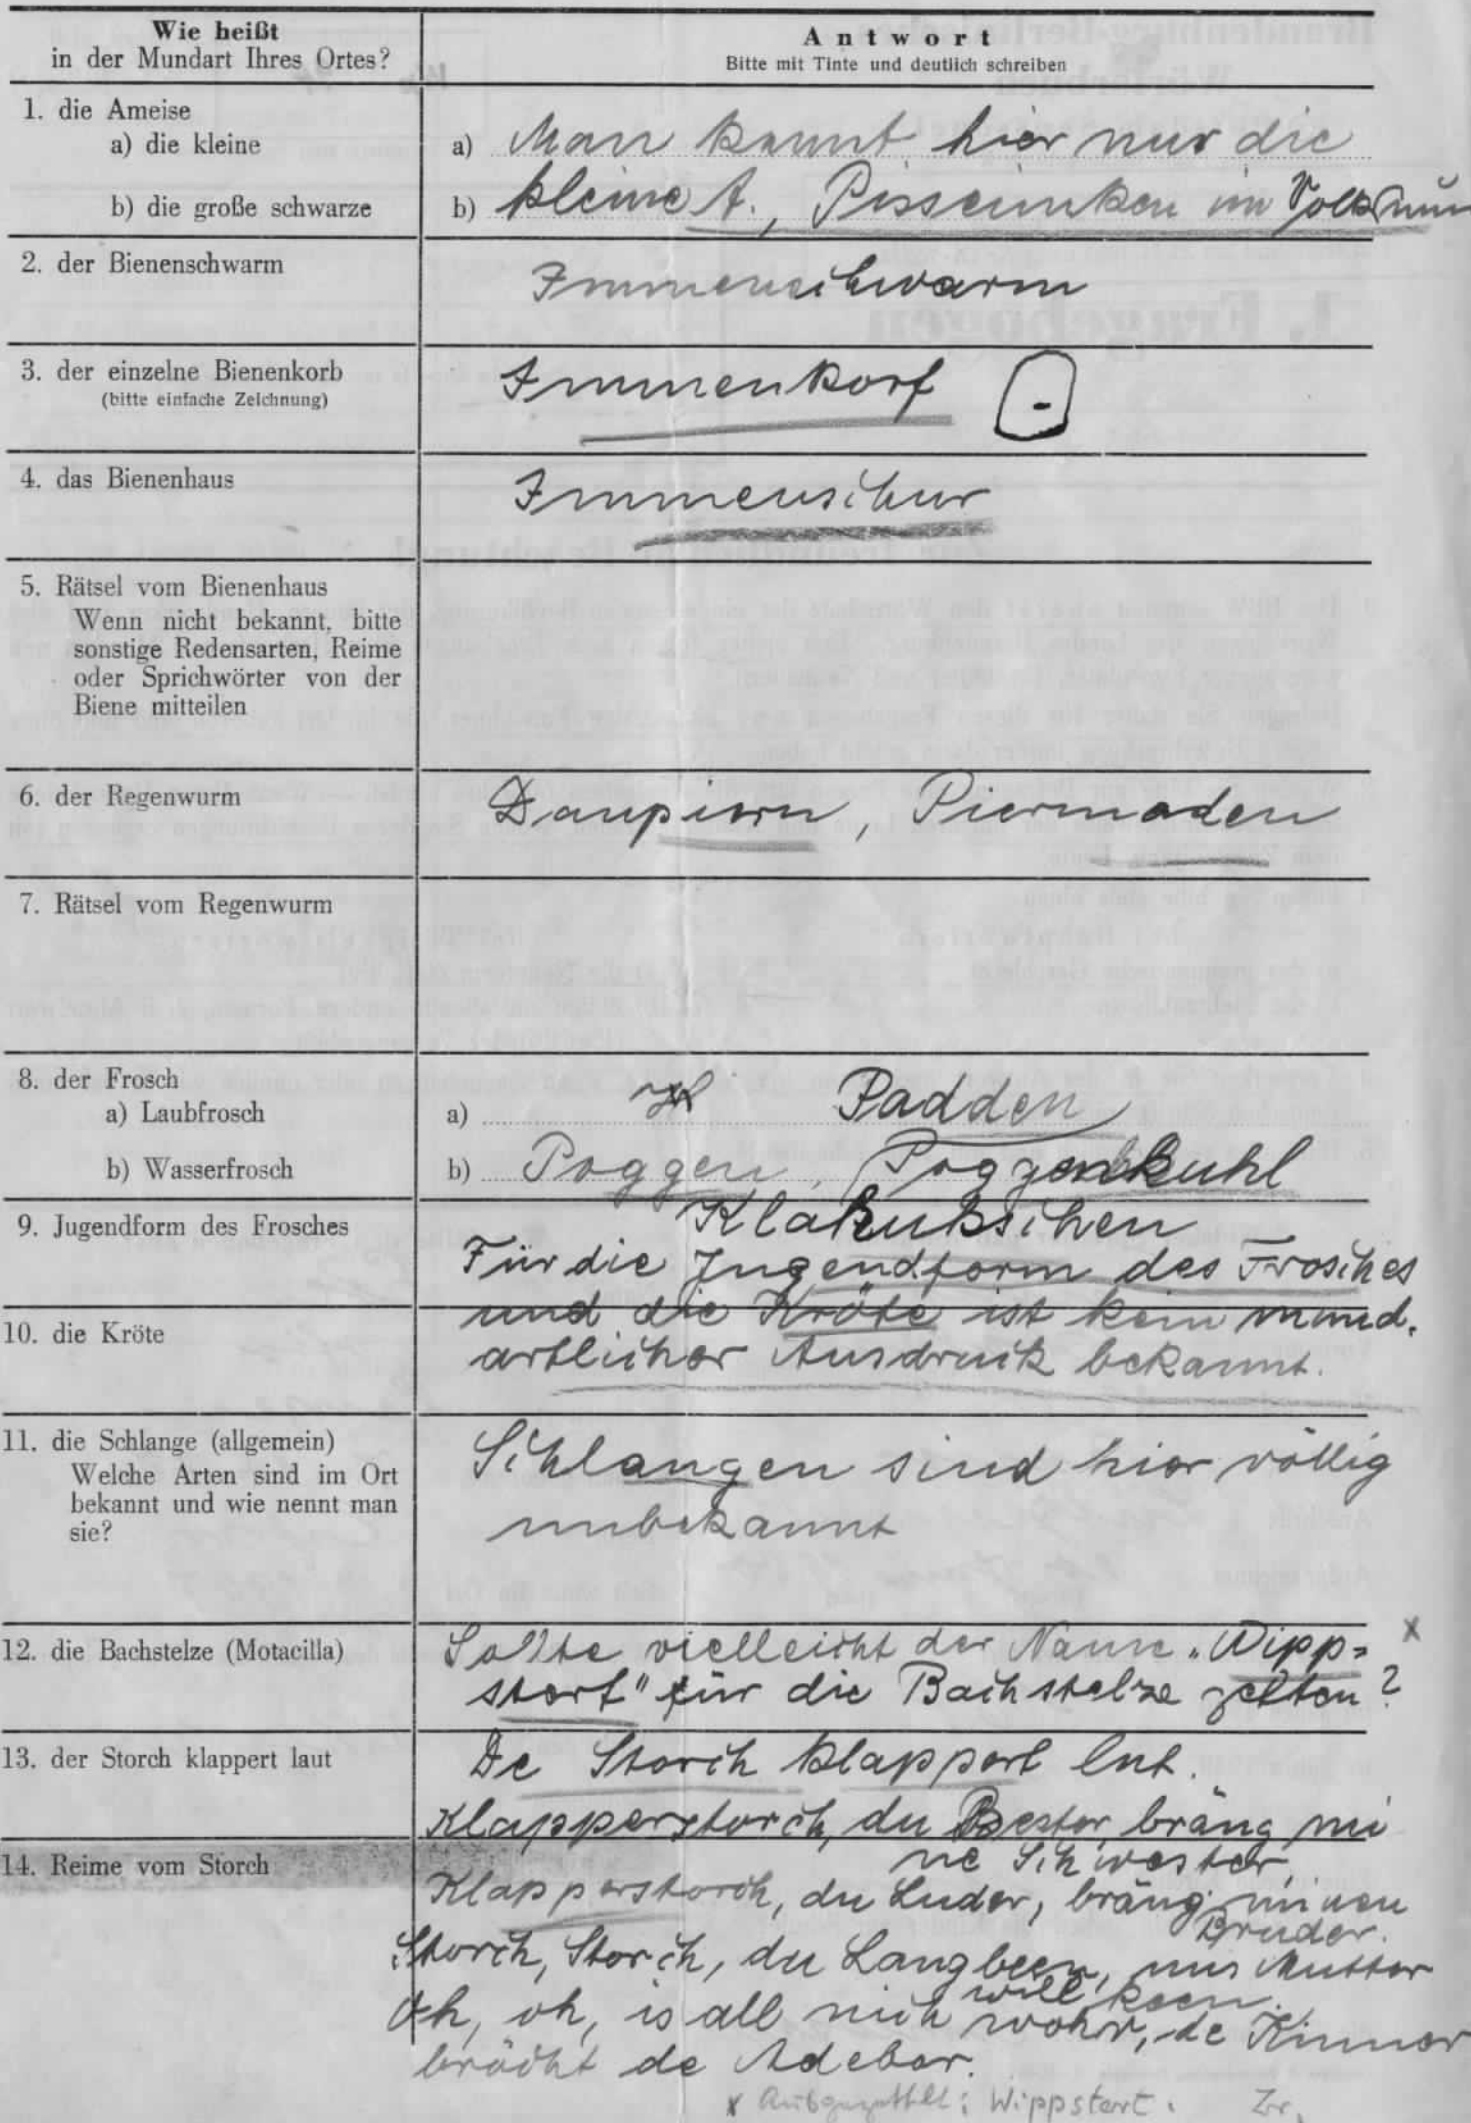 Wie heißt
in der Mundart Ihres Ortes?
Antwort
Bitte mit Tinte und deutlich schreiben
1. die Ameise
a) die kleine
a) Man kennt hier nur die
b) die große schwarze
b) kleine A., Pisseimken im Volksmun
2. der Bienenschwarm
Immenschwarm
3. der einzelne Bienenkorb
(bitte einfache Zeichnung)
Immenkorf
4. das Bienenhaus
Immenschur
5. Rätsel vom Bienenhaus
Wenn nicht bekannt, bitte
sonstige Redensarten, Reime
oder Sprichwörter von der
Biene mitteilen
6. der Regenwurm
Daupiern, Piermaden
7. Rätsel vom Regenwurm
8. der Frosch
a) Laubfrosch
a) Padden
b) Wasserfrosch
b) Poggen, Poggenkuhl
9. Jugendform des Frosches
Klakukschen
Für die Jugendform des Frosches
und die Kröte ist kein mund-
10. die Kröte
artlicher Ausdruck bekannt.
11. die Schlange (allgemein)
Welche Arten sind im Ort
bekannt und wie nennt man
sie?
Schlangen sind hier völlig
unbekannt
12. die Bachstelze (Motacilla)
Sollte vielleicht der Name „Wipp= x
stert" für die Bachstelze gelten?
13. der Storch klappert laut
De Storch klappert lut.
Klapperstorch, du Bester, bräng mi
14. Reime vom Storch
ne Schwester,
Klapperstorch, du Luder, bräng minen
Bruder.
Storch, Storch, du Langbeen, uns Mutter
will keen.
Oh, oh, is all nich wohr, de Kinner
bröcht de Adebar.
x Wippstert.